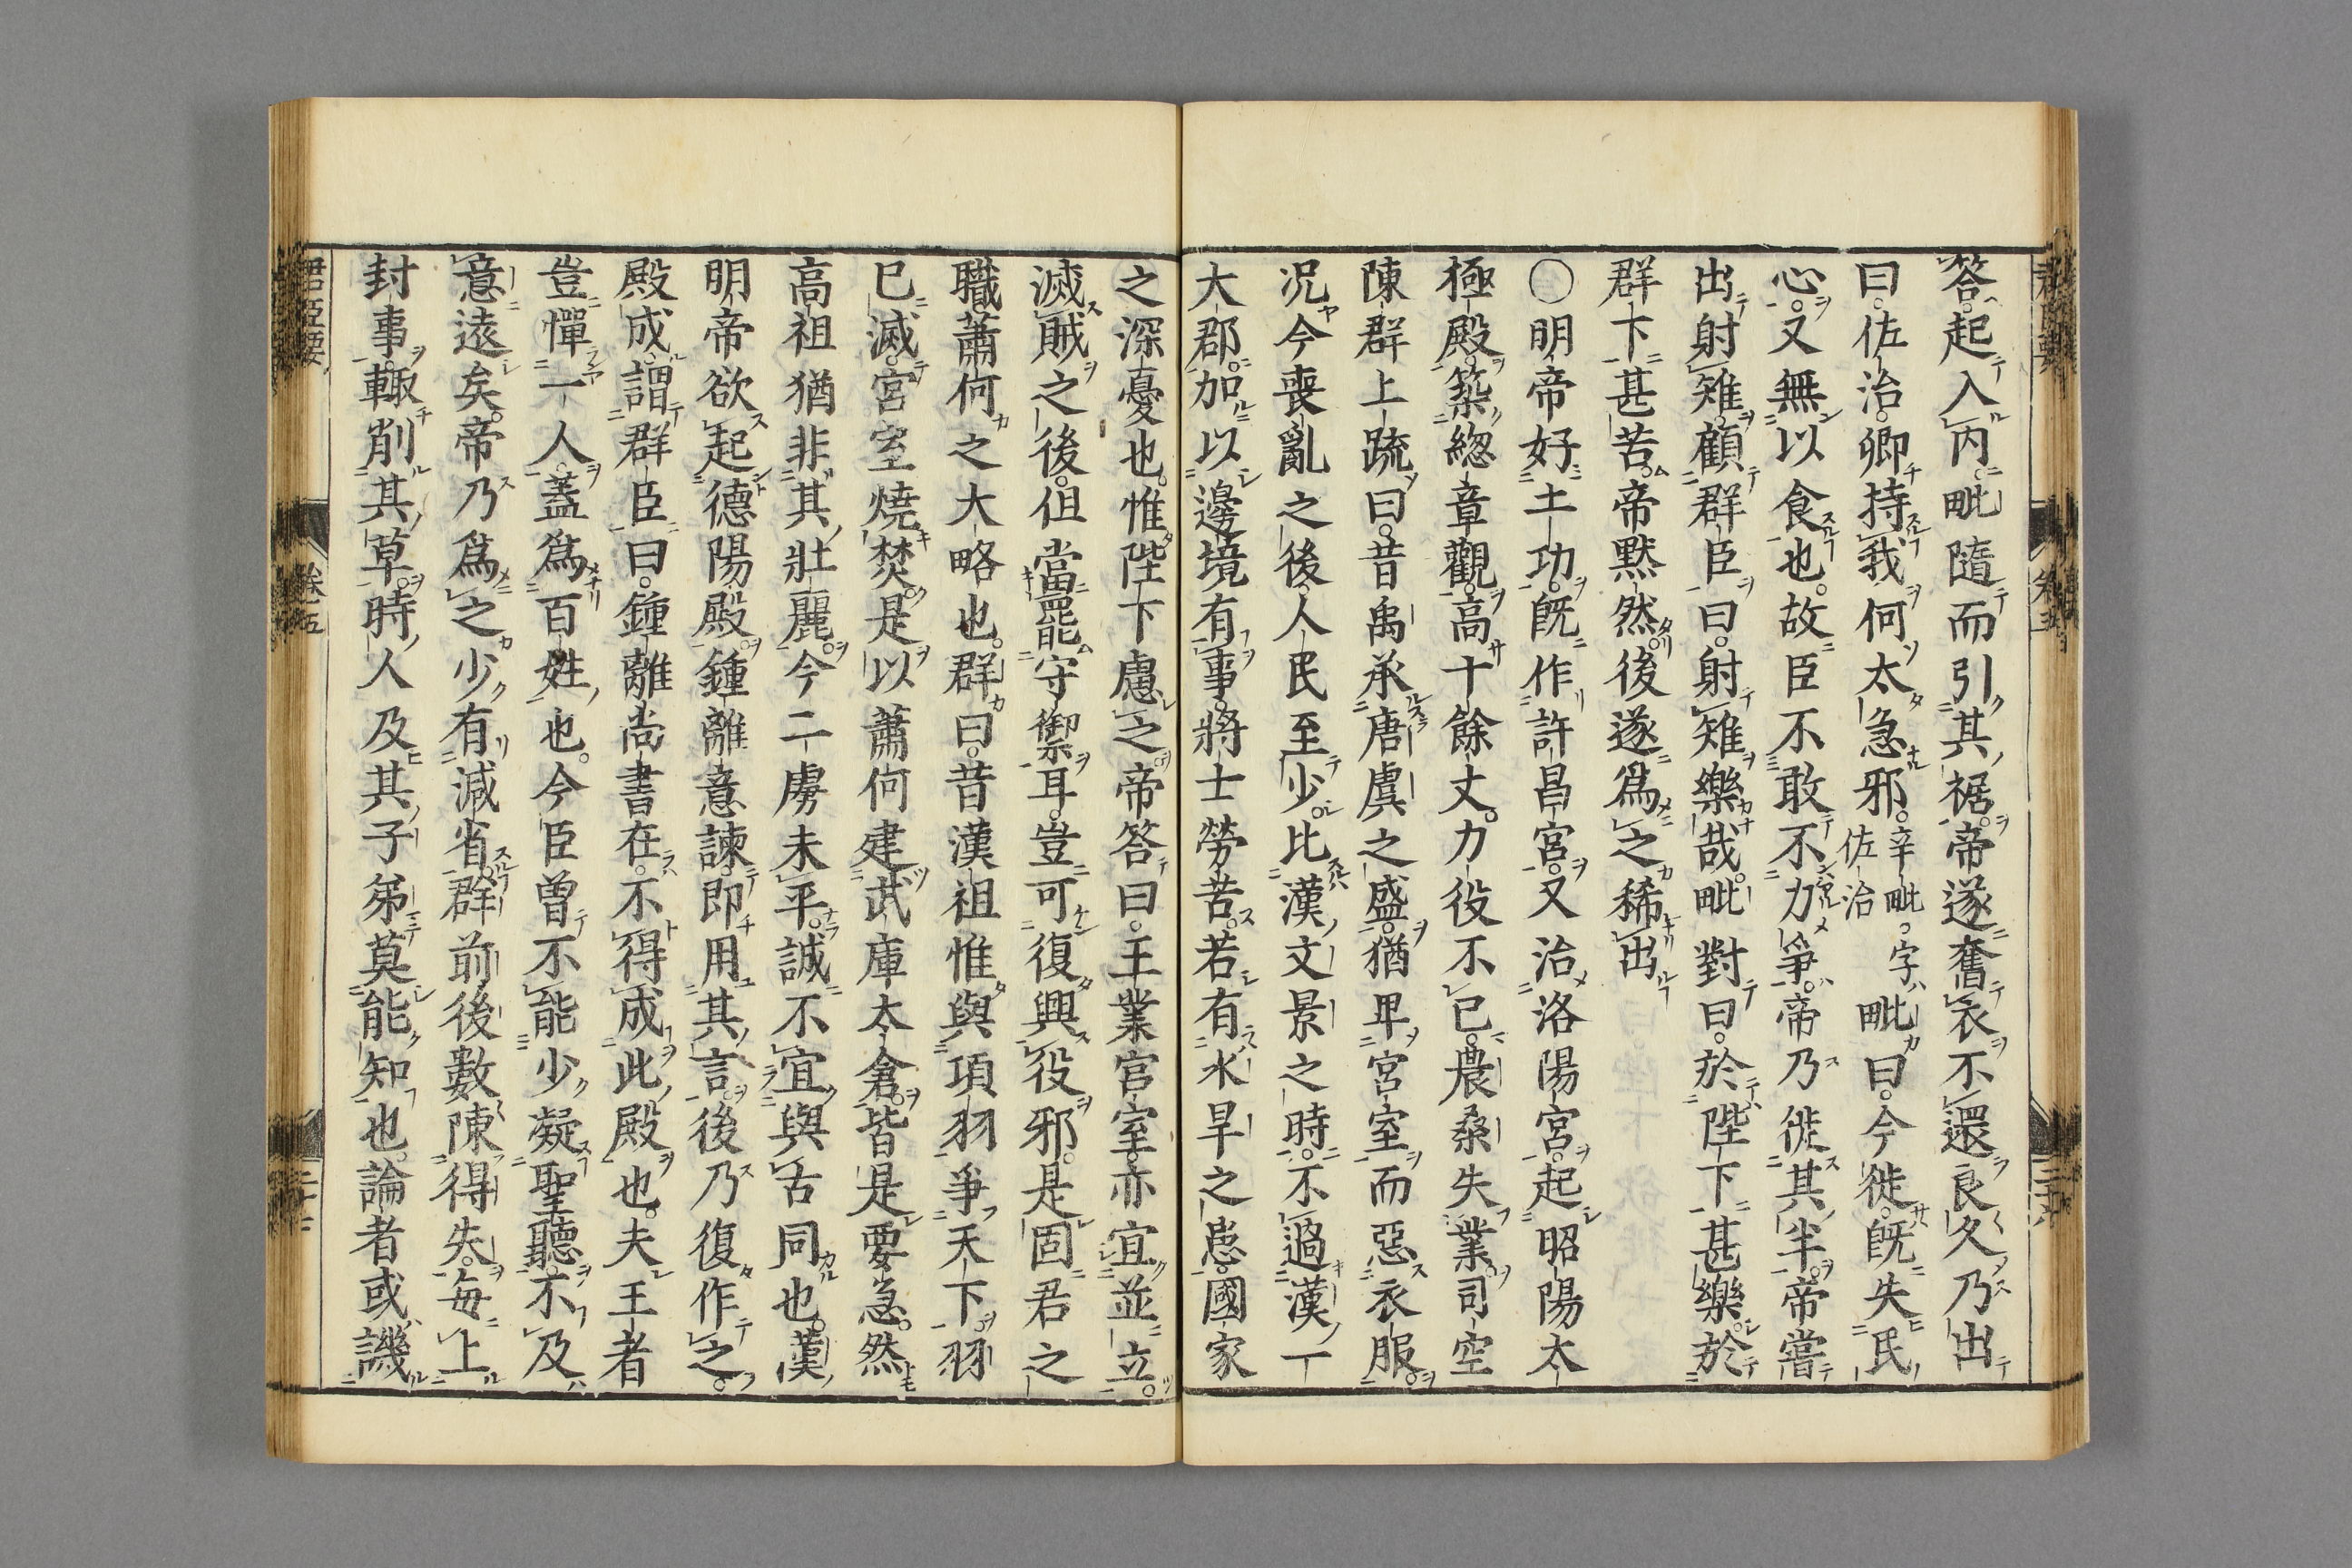 答起入内毗隨而引其裾帝遂奮衣不還良久乃出
曰佐治卿持我何太急邪辛毗字佐治毗曰今徙既失民
心又無以食也故臣不敢不力爭帝乃徙其半帝嘗
出射雉顧群臣曰射雉樂哉毗對曰於陛下甚樂於
群下甚苦帝默然後遂爲之稀出
〇明帝好土功既作許昌宮又治洛陽宮起昭陽太
極殿築緫章觀高十餘丈力役不已農桑失業司空
陳群上疏曰昔禹承唐虞之盛猶卑宮室而惡衣服
况今喪亂之後人民至少比漢文景之時不過漢一
大郡加以邊境有事將士勞苦若有水旱之患國家
之深憂也惟陛下慮之帝答曰王業宮室亦宜並立
滅賊之後但當罷守禦耳豈可復興役邪是固君之
職蕭何之大略也群曰昔漢祖惟與項羽爭天下羽
已滅宮室燒焚是以蕭何建武庫太倉皆是要急然
高祖猶非其壯麗今二虜未平誠不宜與古同也漢
明帝欲起德陽殿鍾離意諫即用其言後乃復作之
殿成謂群臣曰鍾離尚書在不得成此殿也夫王者
豈憚一人蓋爲百姓也今臣曾不能少凝聖聽不及
意遠矣帝乃爲之少有減省群前後數陳得失每上
封事輙削其草時人及其子弟莫能知也論者或譏
卷五